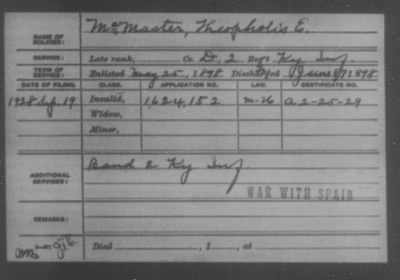 NAME OF SOLDIER: McMaster, Theopholis E.
SERVICE: Late rank, Co. D, 2 Reg't Ky Inf
TERM OF SERVICE: Enlisted May 25, 1898 Discharged June 1898
DATE OF FILING. CLASS. APPLICATION NO. LAW. CERTIFICATE NO.
1928 Sep. 19 Invalid, 1,624,152 A 2-25-29
Widow,
Minor,
ADDITIONAL SERVICES: Band 2 Ky Inf
WAR WITH SPAIN
REMARKS:
Died , 1 , at